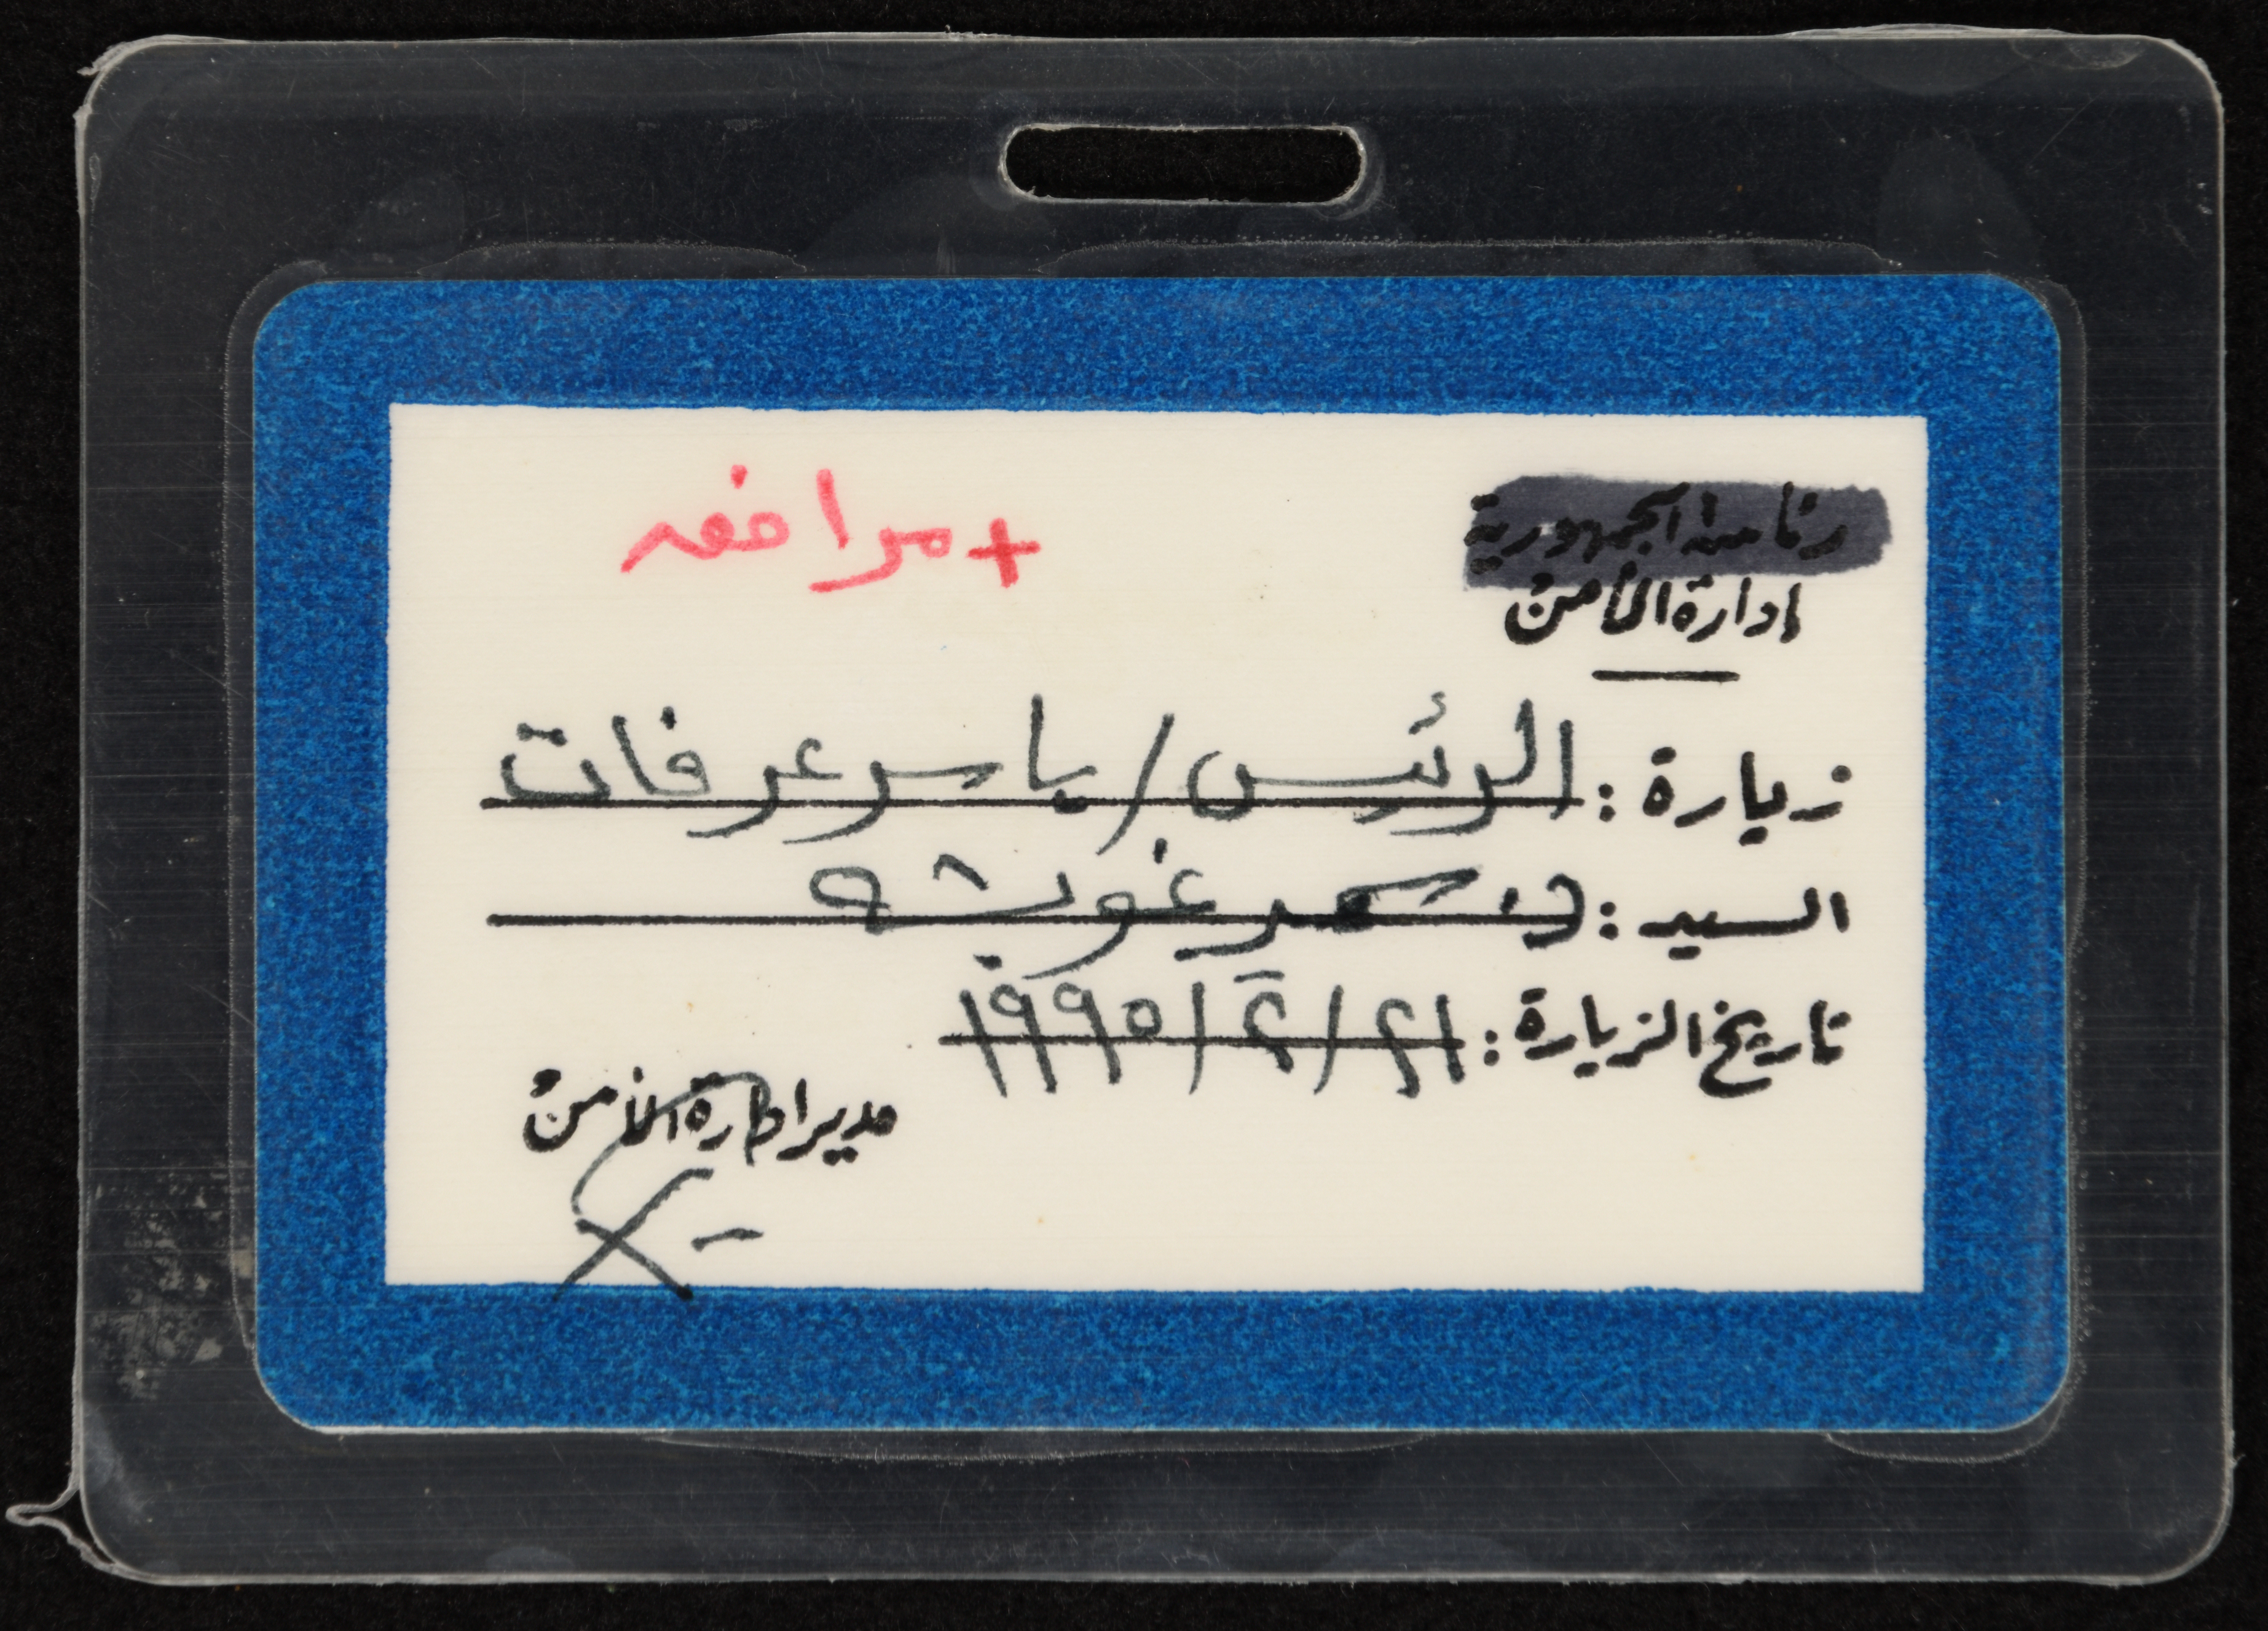 رئاسة الجمهورية
إدارة الأمن
+ مرافقه
زيارة : الرئيس / ياسر عرفات
السيد : د. سمير غوشه
تاريخ الزيارة : ٢١ / ٢ / ١٩٩٥
مدير إدارة الأمن